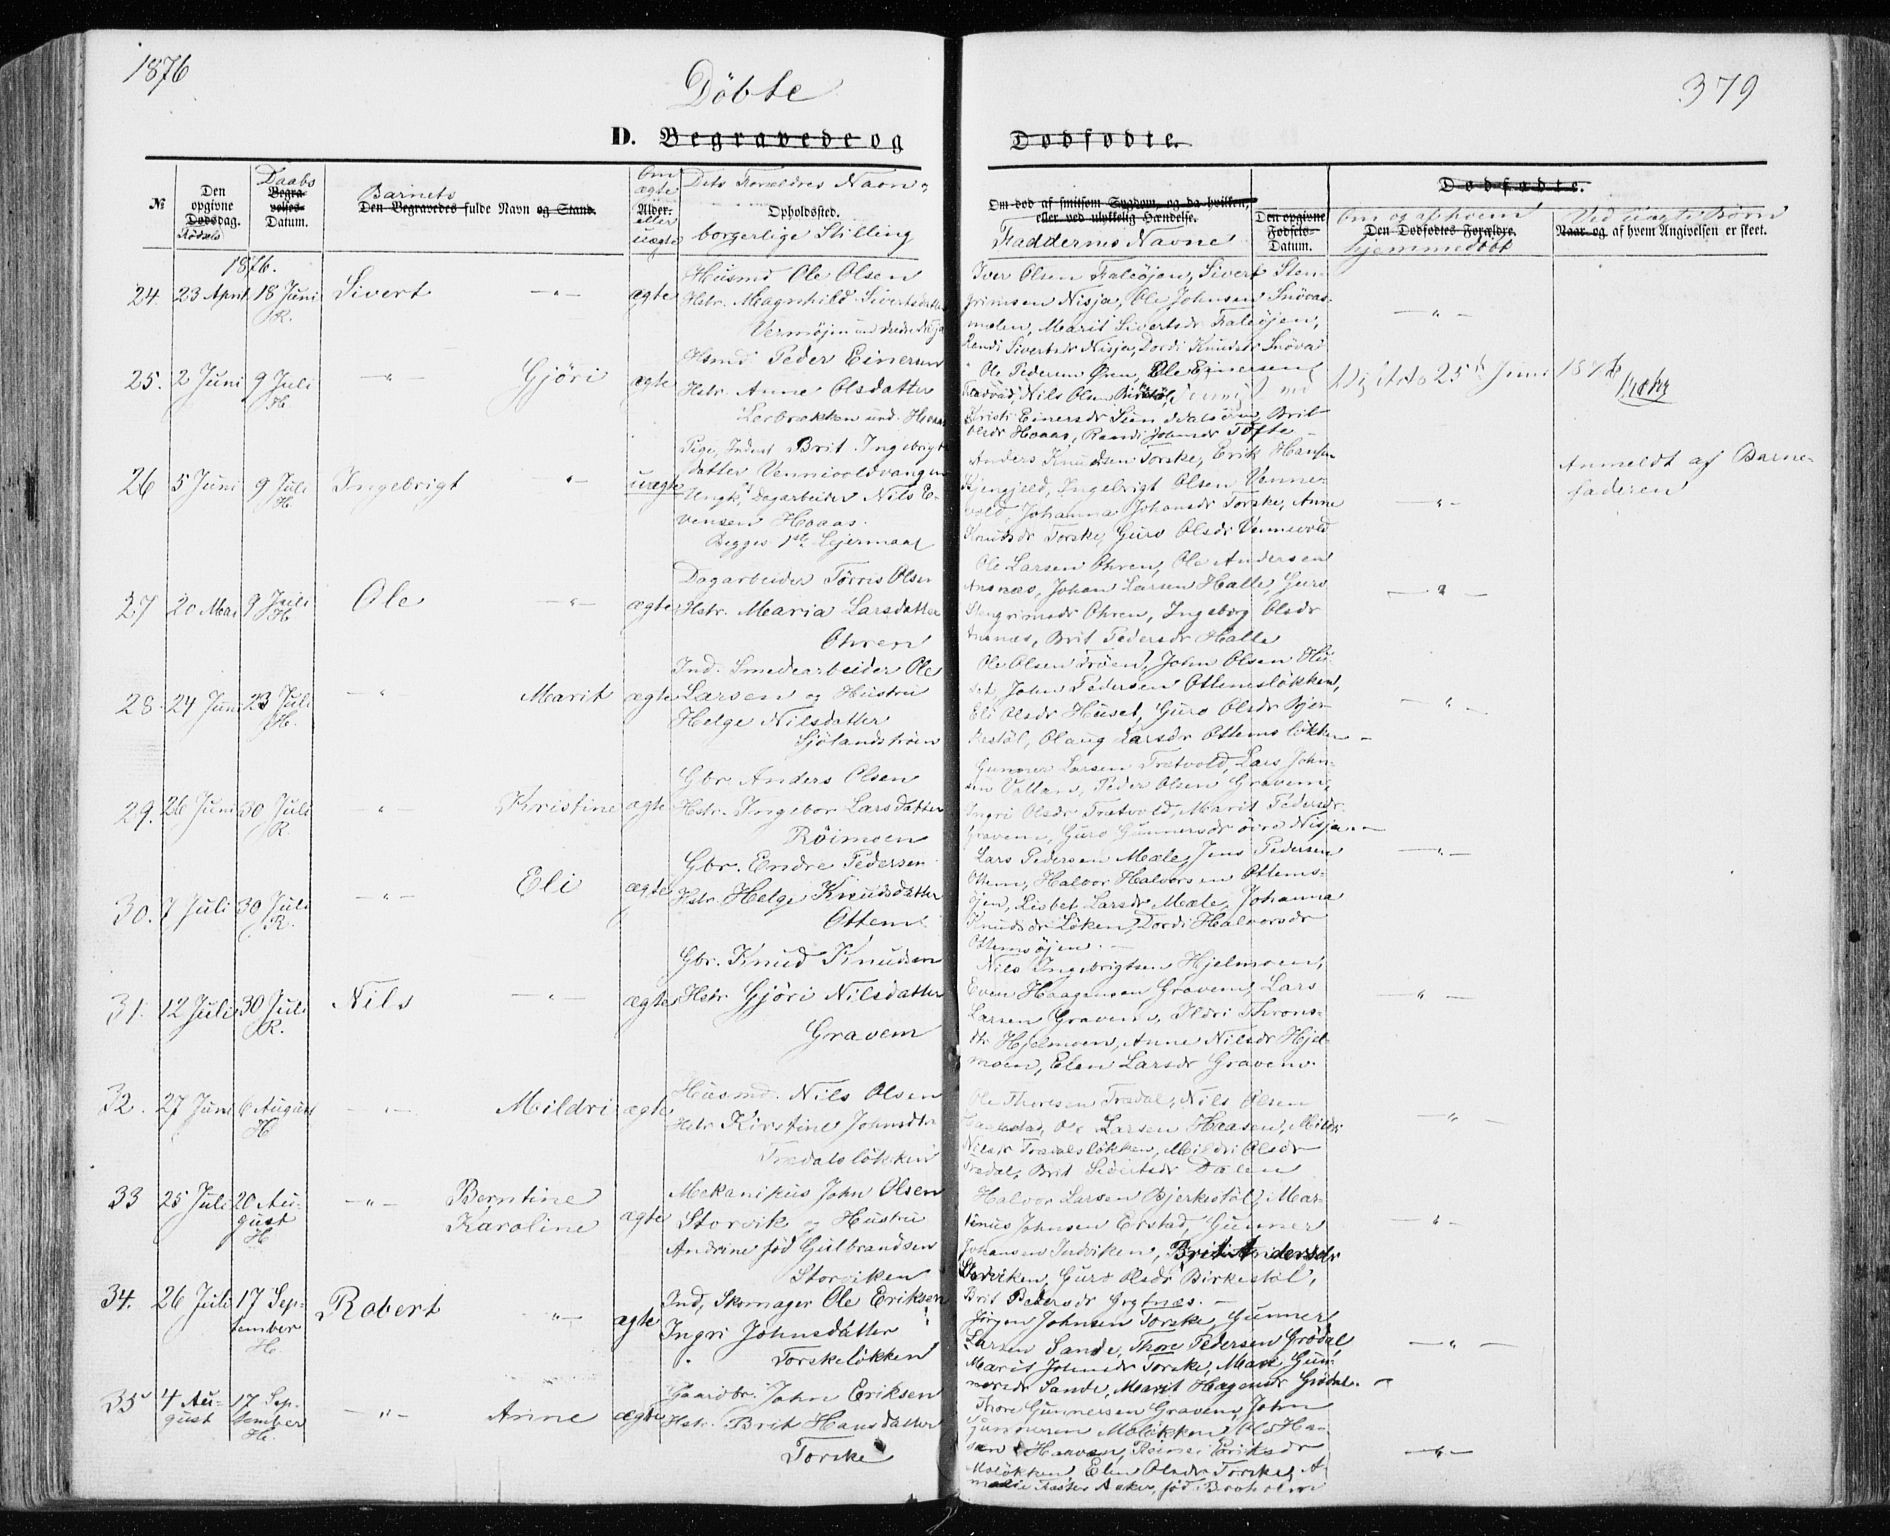 1876
379
Döbte
D. Begravede og Dødfødte.
№
Den opgivne Dødsdag.
Fødsels
Daabs
Begravelses-Datum.
Barnets
Den Begravedes fulde Navn og Stand.
Om ægte
Alder.
eller uægte
Dets Forældres Navn,
Opholdssted.
borgerlige Stilling
Om død af smitsom Sygdom, og da hvilken,
eller ved ulykkelig Hændelse.
Faddernes Navne
Den opgivne Fødsels-Datum.
Dødfødte.
Om og af hvem
Den Dødfødtes Forældre.
hjemmedöbt
Ved uægte Börn
Naar og af hvem Angivelsen er skeet.
1876.
24. 23 April 18 Juni R. Sivert — " — ægte
Husmd Ole Olsen
Hstr. Magnhild Sivertsdatter
Vermöjen und. Nedre Nisja
Iver Olsen Faleöjen, Sivert Sten-
grimsen Nisja, Ole Johnsen Snövas-
melen, Marit Sivertsdr Faleöjen,
Randi Sivertsdr Nisja, Dordi Knudsdr Snöva
— " —
25. 2 Juni 9 Juli H. — " — Gjöri ægte
Husmd Peder Einersen
Hstr. Anne Olsdatter
Lerbrækken und. Hoaas
Ole Pedersen Ören, Ole Einersen
Nils Olsen
Kristi Einersdr Brit
Olsdr Hoaas, Randi Johnsdr Tofte
25de Juni 1876
26 5 Juni 9 Juli H. Ingebrigt — " — uægte
Pige, Inderst Brit Ingebrigts
datter Vennevoldvangen
Ungk. Dagarbeider Nils E-
vensen Hoaas.
Begges 1ste Lejermaal
Anders Knudsen Torske, Erik Hansen
Ingebrigt Olsen Venne-
vold, Johanna Johansdr Torske, Anne
Knudsdr Torske, Guro Olsdr Vennevold
— " —
Anmeldt af Barne-
faderen
27 20 Mai 9 Juli H. Ole — " — ægte
Dagarbeider Törris Olsen
Hstr. Maria Larsdatter
Ohren
Ole Larsen Ohren, Ole Andersen
Ansnæs, Johan Larsen Halle, Guro
Stengrimsdr Ohren, Ingeborg Olsdr
Ansnæs, Brit Pedersdr Halle
— " —
28. 24 Juni 23 Juli H. — " — Marit ægte
Ind. Smedearbeider Ole
Larsen og Hustru
Helge Nilsdatter
Sjölandströen
Ole Olsen Tröen, John Olsen Hu-
set, John Pedersen Ottemslökken,
Eli Olsdr Huset, Guro Olsdr Bjer-
kestöl, Olaug Larsdr Ottemslökken —
— " —
29. 26 Juni 30 Juli R. — " — Kristine ægte
Gbr. Anders Olsen
Hstr. Ingebor Larsdatter
Röimoen
Gunner Larsen Trætvold, Lars John-
sen Vullan, Peder Olsen Gravem,
Ingri Olsdr Trætvold, Marit Pedersdr
Gravem, Guro Gunnersdr övre Nisja. —
— " —
30. 7 Juli 30 Juli R. — " — Eli ægte
Gbr. Endre Pedersen
Hstr. Helge Knudsdatter
Ottem
Lars Pedersen Mæle, Jens Pedersen
Ottem, Halvor Halvorsen Ottems-
öjen, Lisbet Larsdr Mæle, Johanna
Knudsdr Löken, Dordi Halvorsdr
Ottemsöjen. —
31. 12 Juli 30 Juli R. Nils — " — ægte
Gbr. Knud Knudsen
Hstr Gjöri Nilsdatter
Gravem
Nils Ingebrigtsen Hjelmoen,
Even Haagensen Gravem, Lars
Larsen Gravem, Ildri Throns-
dtr Hjelmoen, Anne Nilsdr Hjel-
moen, Elen Larsdr Gravem.
— " —
32. 27 Juni 6 August H — " — Mildri ægte
Husmd. Nils Olsen
Hstr Kirstine Johnsdtr
Trædalslökken
Ole Thoresen Trædal, Nils Olsen
Ole Larsen Haasen, Mildri
Nilsdr Trædalslökken, Mildri Olsdr
Trædal, Brit Sivertsdr Dalen
— " —
33 25 Juli 20 August H — " — Berntine Karoline ægte
Mekanikus John Olsen
Storvik og Hustru
Andrine föd Gulbrandsen
Storviken
Halvor Larsen Bjerkestöl, Mar-
tinus Johnsen Erstad, Gunner
Johansen Indviken, Brit Andersdr
Storviken, Guro Olsdr Birkestöl,
Brit Pedersdr Grytnæs. —
— " —
34. 26 Juli 17 September H. Robert " — ægte
Ind, Skomager Ole Eriksen
Ingri Johnsdatter
Torskelökken
Jörgen Johnsen Torske, Gunner
Larsen Sande, Thore Pedersen Grödal
Marit Johnsdr Torske, Mare Gun-
nersdr Sande, Marit Hagensdr Grödal. —
— " —
35 4 August 17 September H. — " — Anne ægte
Gaardbr. John Eriksen
Hstr. Brit Hansdatter
Torske
Thore Gunnersen Gravem, John
Gunnersen Molökken, Ole Han-
sen Eriksdr
Molökken, Elen Olsdr Torske, A-
föd Broholm
— " —